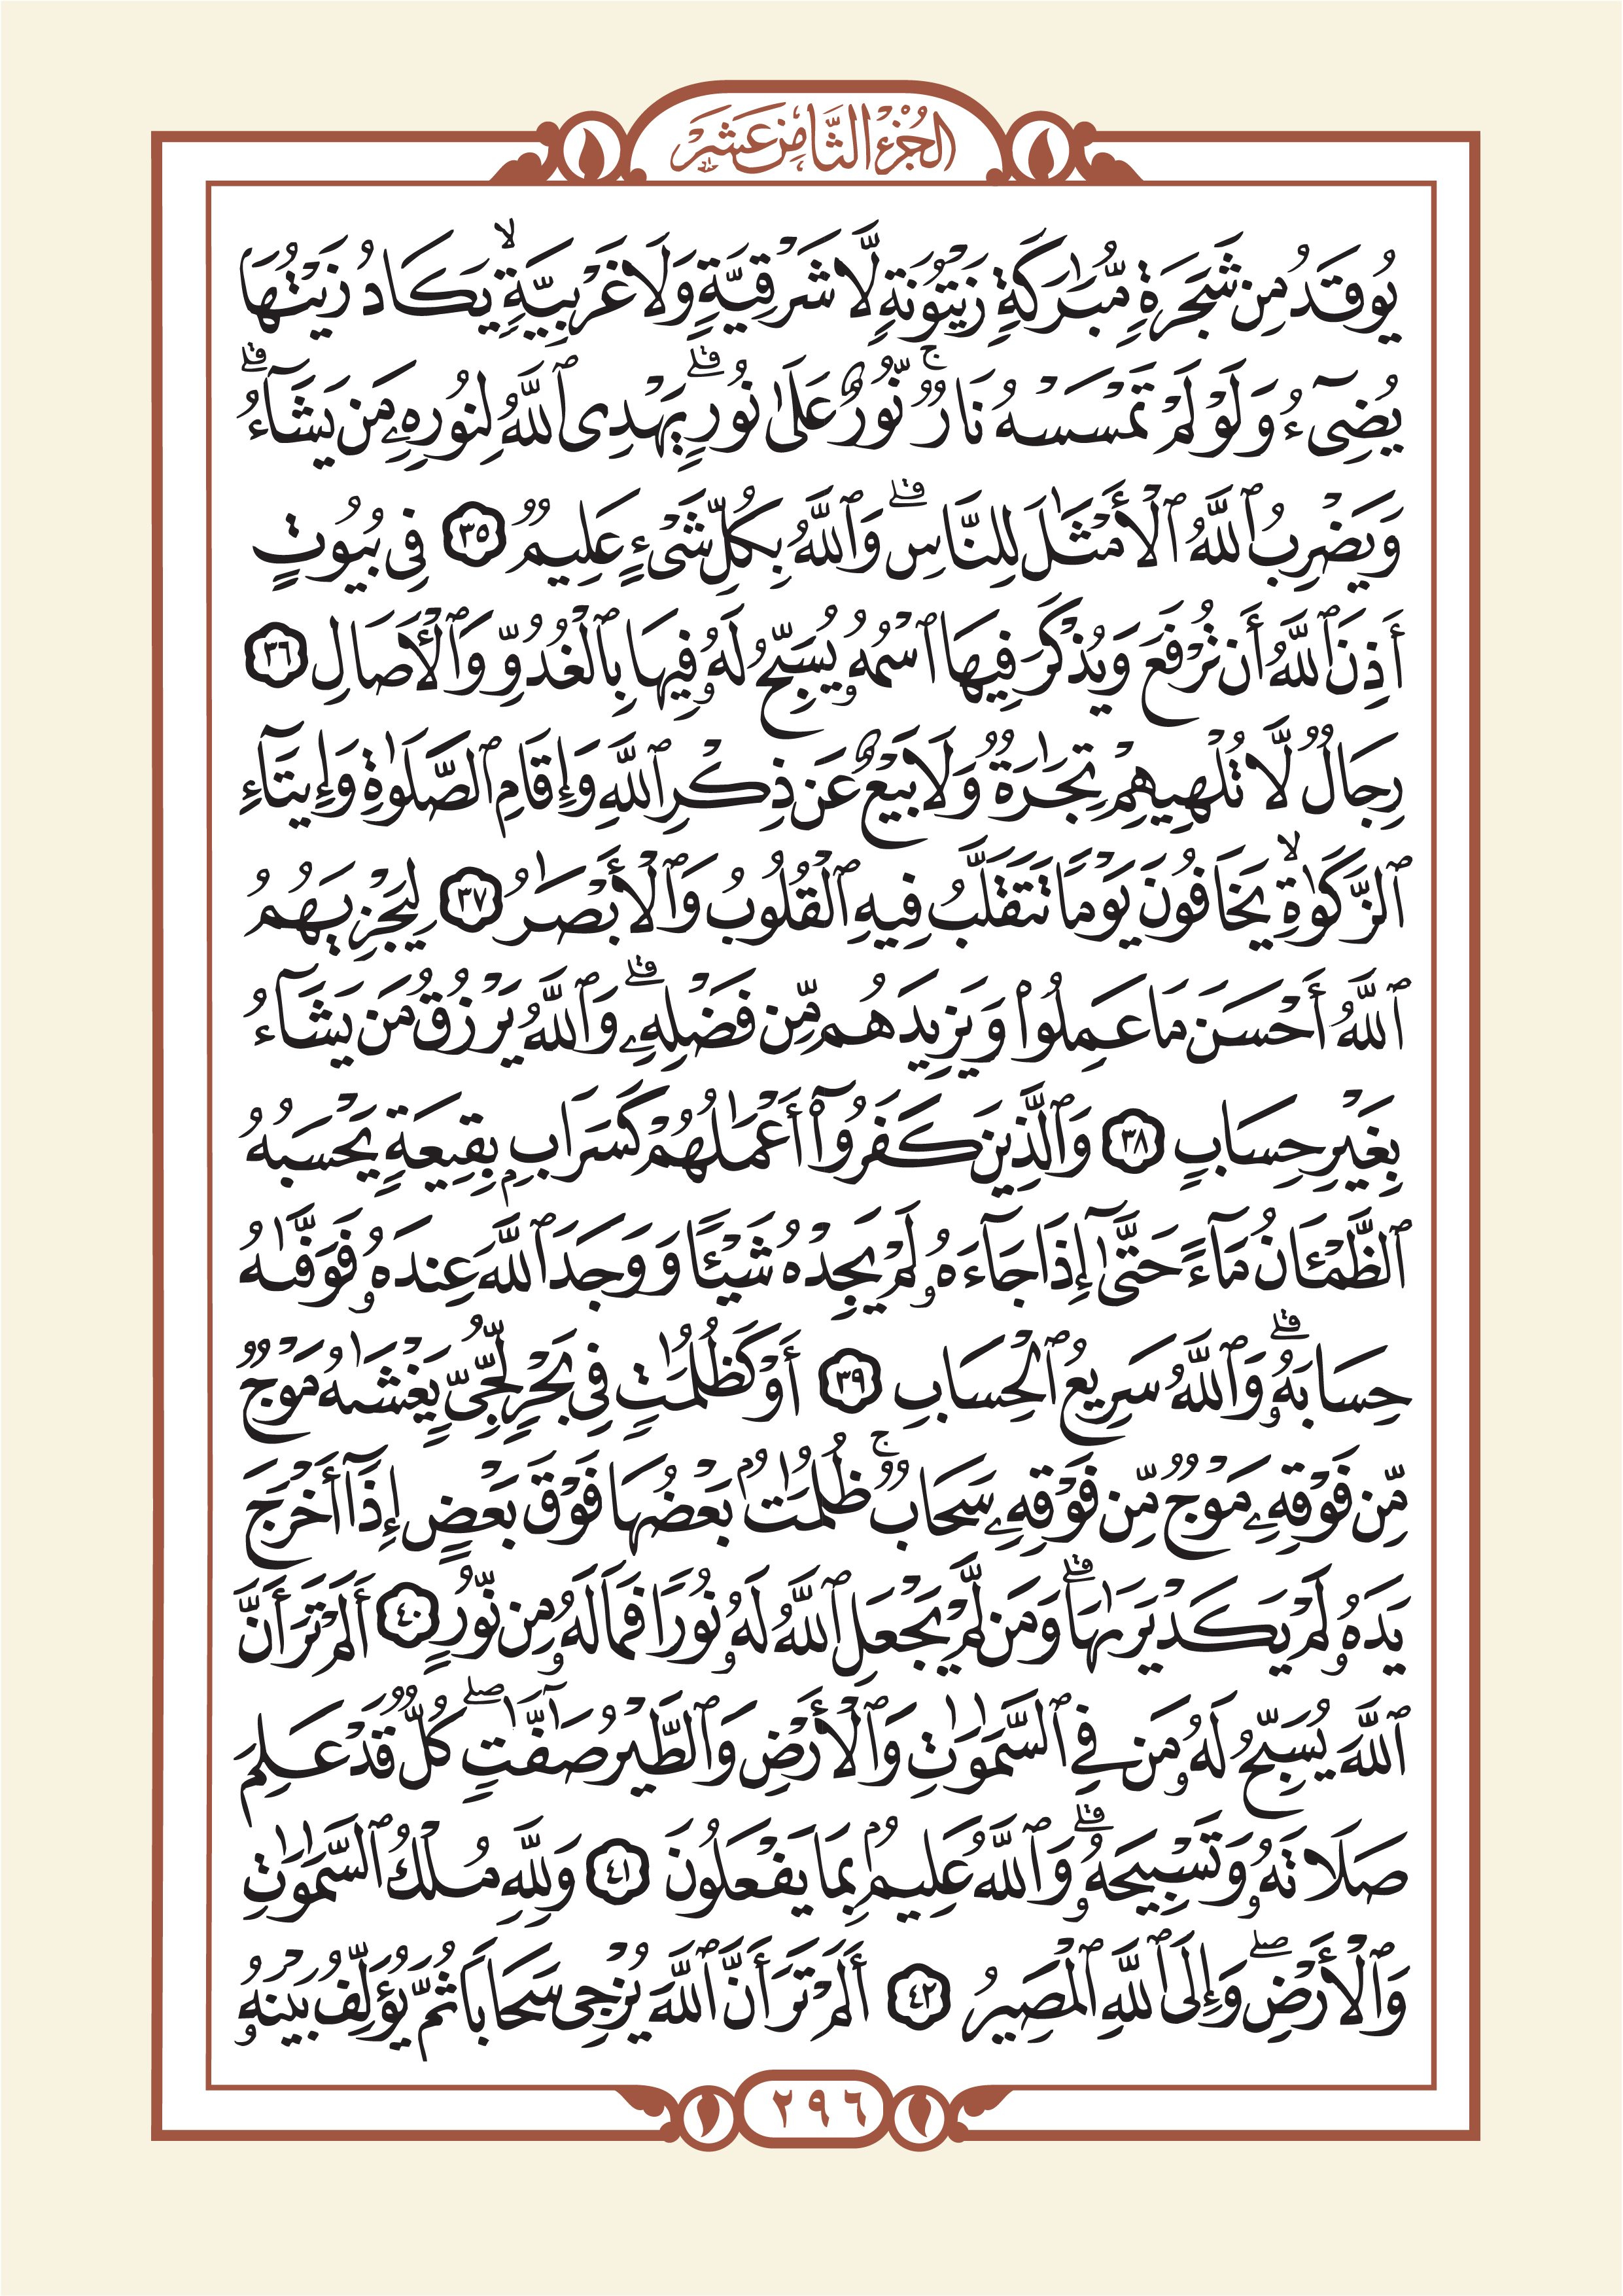 الجُزْءُ الثَّامِنَ عَشَرَ
يُوقَدُ مِن شَجَرَةٍ مُّبَٰرَكَةٍ زَيْتُونَةٍ لَّا شَرْقِيَّةٍ وَلَا غَرْبِيَّةٍۙ يَكَادُ زَيْتُهَا
يُضِىٓءُ وَلَوْ لَمْ تَمْسَسْهُ نَارٌۚ نُّورٌ عَلَىٰ نُورٍۗ يَهْدِى ٱللَّهُ لِنُورِهِۦ مَن يَشَآءُۗ
وَيَضْرِبُ ٱللَّهُ ٱلْأَمْثَٰلَ لِلنَّاسِۗ وَٱللَّهُ بِكُلِّ شَىْءٍ عَلِيمٌ ٣٥ فِى بُيُوتٍ
أَذِنَ ٱللَّهُ أَن تُرْفَعَ وَيُذْكَرَ فِيهَا ٱسْمُهُۥ يُسَبِّحُ لَهُۥ فِيهَا بِٱلْغُدُوِّ وَٱلْأَصَالِ ٣٦
رِجَالٌ لَّا تُلْهِيهِمْ تِجَٰرَةٌ وَلَا بَيْعٌ عَن ذِكْرِ ٱللَّهِ وَإِقَامِ ٱلصَّلَوٰةِ وَإِيتَآءِ
ٱلزَّكَوٰةِۙ يَخَافُونَ يَوْمًا تَتَقَلَّبُ فِيهِ ٱلْقُلُوبُ وَٱلْأَبْصَٰرُ ٣٧ لِيَجْزِيَهُمُ
ٱللَّهُ أَحْسَنَ مَا عَمِلُوا۟ وَيَزِيدَهُم مِّن فَضْلِهِۦۗ وَٱللَّهُ يَرْزُقُ مَن يَشَآءُ
بِغَيْرِ حِسَابٍ ٣٨ وَٱلَّذِينَ كَفَرُوٓا۟ أَعْمَٰلُهُمْ كَسَرَابٍۭ بِقِيعَةٍ يَحْسَبُهُ
ٱلظَّمْـَٔانُ مَآءً حَتَّىٰٓ إِذَا جَآءَهُۥ لَمْ يَجِدْهُ شَيْـًٔا وَوَجَدَ ٱللَّهَ عِندَهُۥ فَوَفَّىٰهُ
حِسَابَهُۥۗ وَٱللَّهُ سَرِيعُ ٱلْحِسَابِ ٣٩ أَوْ كَظُلُمَٰتٍ فِى بَحْرٍ لُّجِّىٍّ يَغْشَىٰهُ مَوْجٌ
مِّن فَوْقِهِۦ مَوْجٌ مِّن فَوْقِهِۦ سَحَابٌۚ ظُلُمَٰتٌۢ بَعْضُهَا فَوْقَ بَعْضٍ إِذَآ أَخْرَجَ
يَدَهُۥ لَمْ يَكَدْ يَرَىٰهَاۗ وَمَن لَّمْ يَجْعَلِ ٱللَّهُ لَهُۥ نُورًا فَمَا لَهُۥ مِن نُّورٍ ٤٠ أَلَمْ تَرَ أَنَّ
ٱللَّهَ يُسَبِّحُ لَهُۥ مَن فِى ٱلسَّمَٰوَٰتِ وَٱلْأَرْضِ وَٱلطَّيْرُ صَٰٓفَّٰتٍۖ كُلٌّ قَدْ عَلِمَ
صَلَاتَهُۥ وَتَسْبِيحَهُۥۗ وَٱللَّهُ عَلِيمٌۢ بِمَا يَفْعَلُونَ ٤١ وَلِلَّهِ مُلْكُ ٱلسَّمَٰوَٰتِ
وَٱلْأَرْضِۖ وَإِلَى ٱللَّهِ ٱلْمَصِيرُ ٤٢ أَلَمْ تَرَ أَنَّ ٱللَّهَ يُزْجِى سَحَابًا ثُمَّ يُؤَلِّفُ بَيْنَهُۥ
٢٩٦